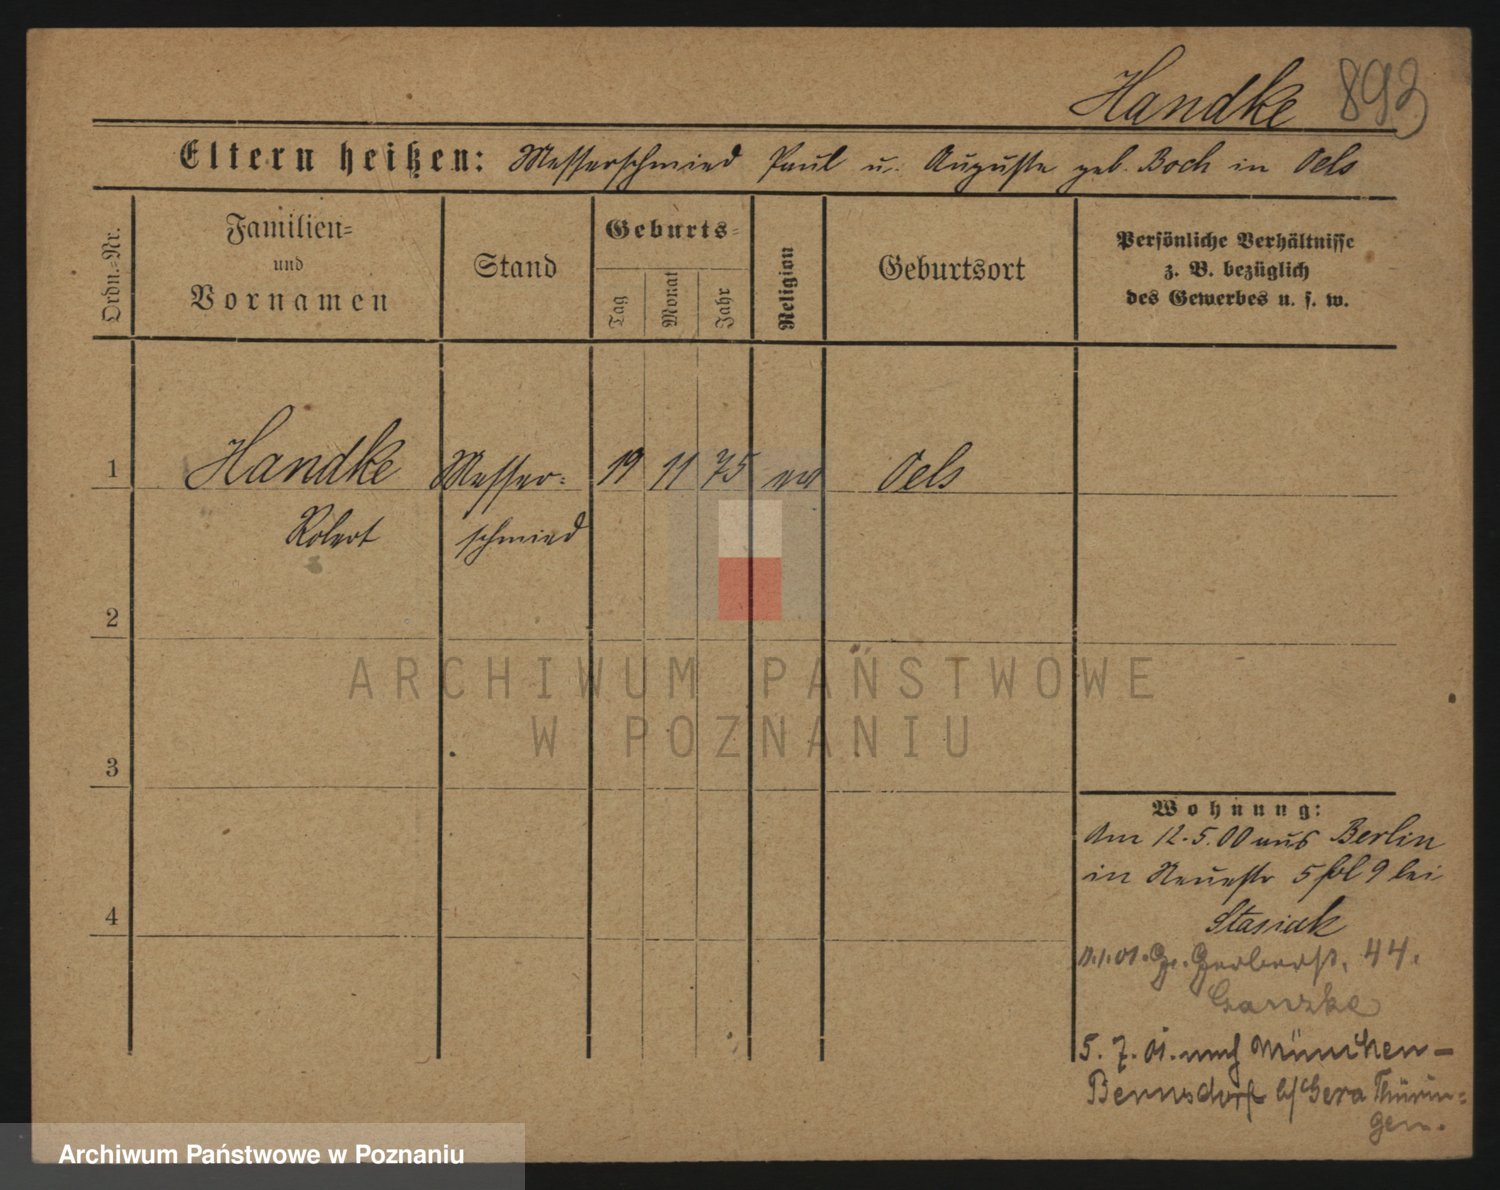 Handke 893
Eltern heißen: Messerschmied Paul u. Auguste geb. Boch in Oels
Ordn.-Nr.
Familien-
und
Vornamen
Stand
Geburts-
Tag
Monat
Jahr
Religion
Geburtsort
Persönliche Verhältnisse
z. B. bezüglich
des Gewerbes u. s. w.
1 Handke Messer- 19 11 75 ev Oels
Robert schmied
2
3
4
Wohnung:
Am 12.5.00 aus Berlin
in Neuestr 5 Hl 9 bei
Stasiak
11.1.01. Gr. Gerberst. 44.
Ganzke
5. 7. 01. nach München-
Bernsdorf b/Gera Thürin-
gen.
ARCHIWUM PAŃSTWOWE
W POZNANIU
Archiwum Państwowe w Poznaniu